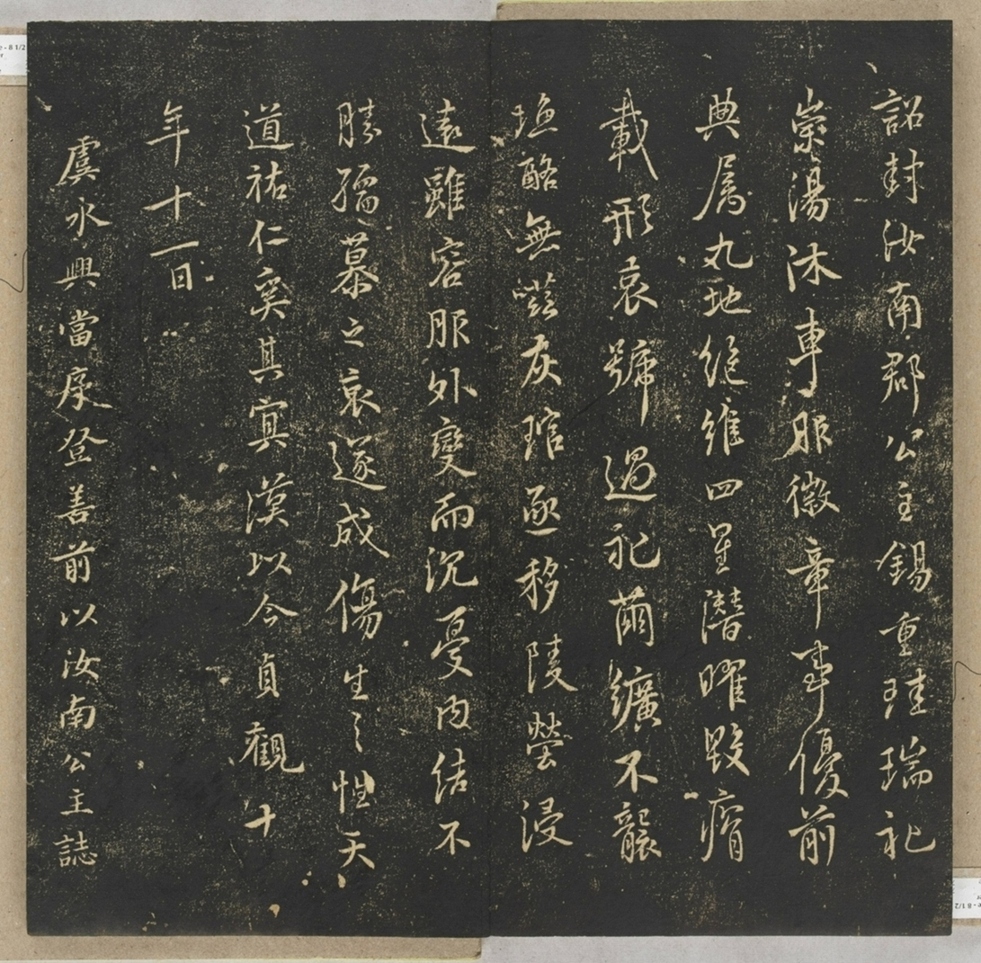 詔封汝南郡公主錫重珪瑞礼
崇湯沐車服徽章事優前
典属九地絕維四星潛曜毀瘠
載形哀號過礼繭纊不襲
塩酪無嗞灰琯亟移陵塋浸
遠雖容服外變而沉憂內結不
勝孺慕之哀遂成傷生之性天
道祐仁奚其冥漠以今貞觀十
年十一日
虞永興當登善前以汝南公主誌